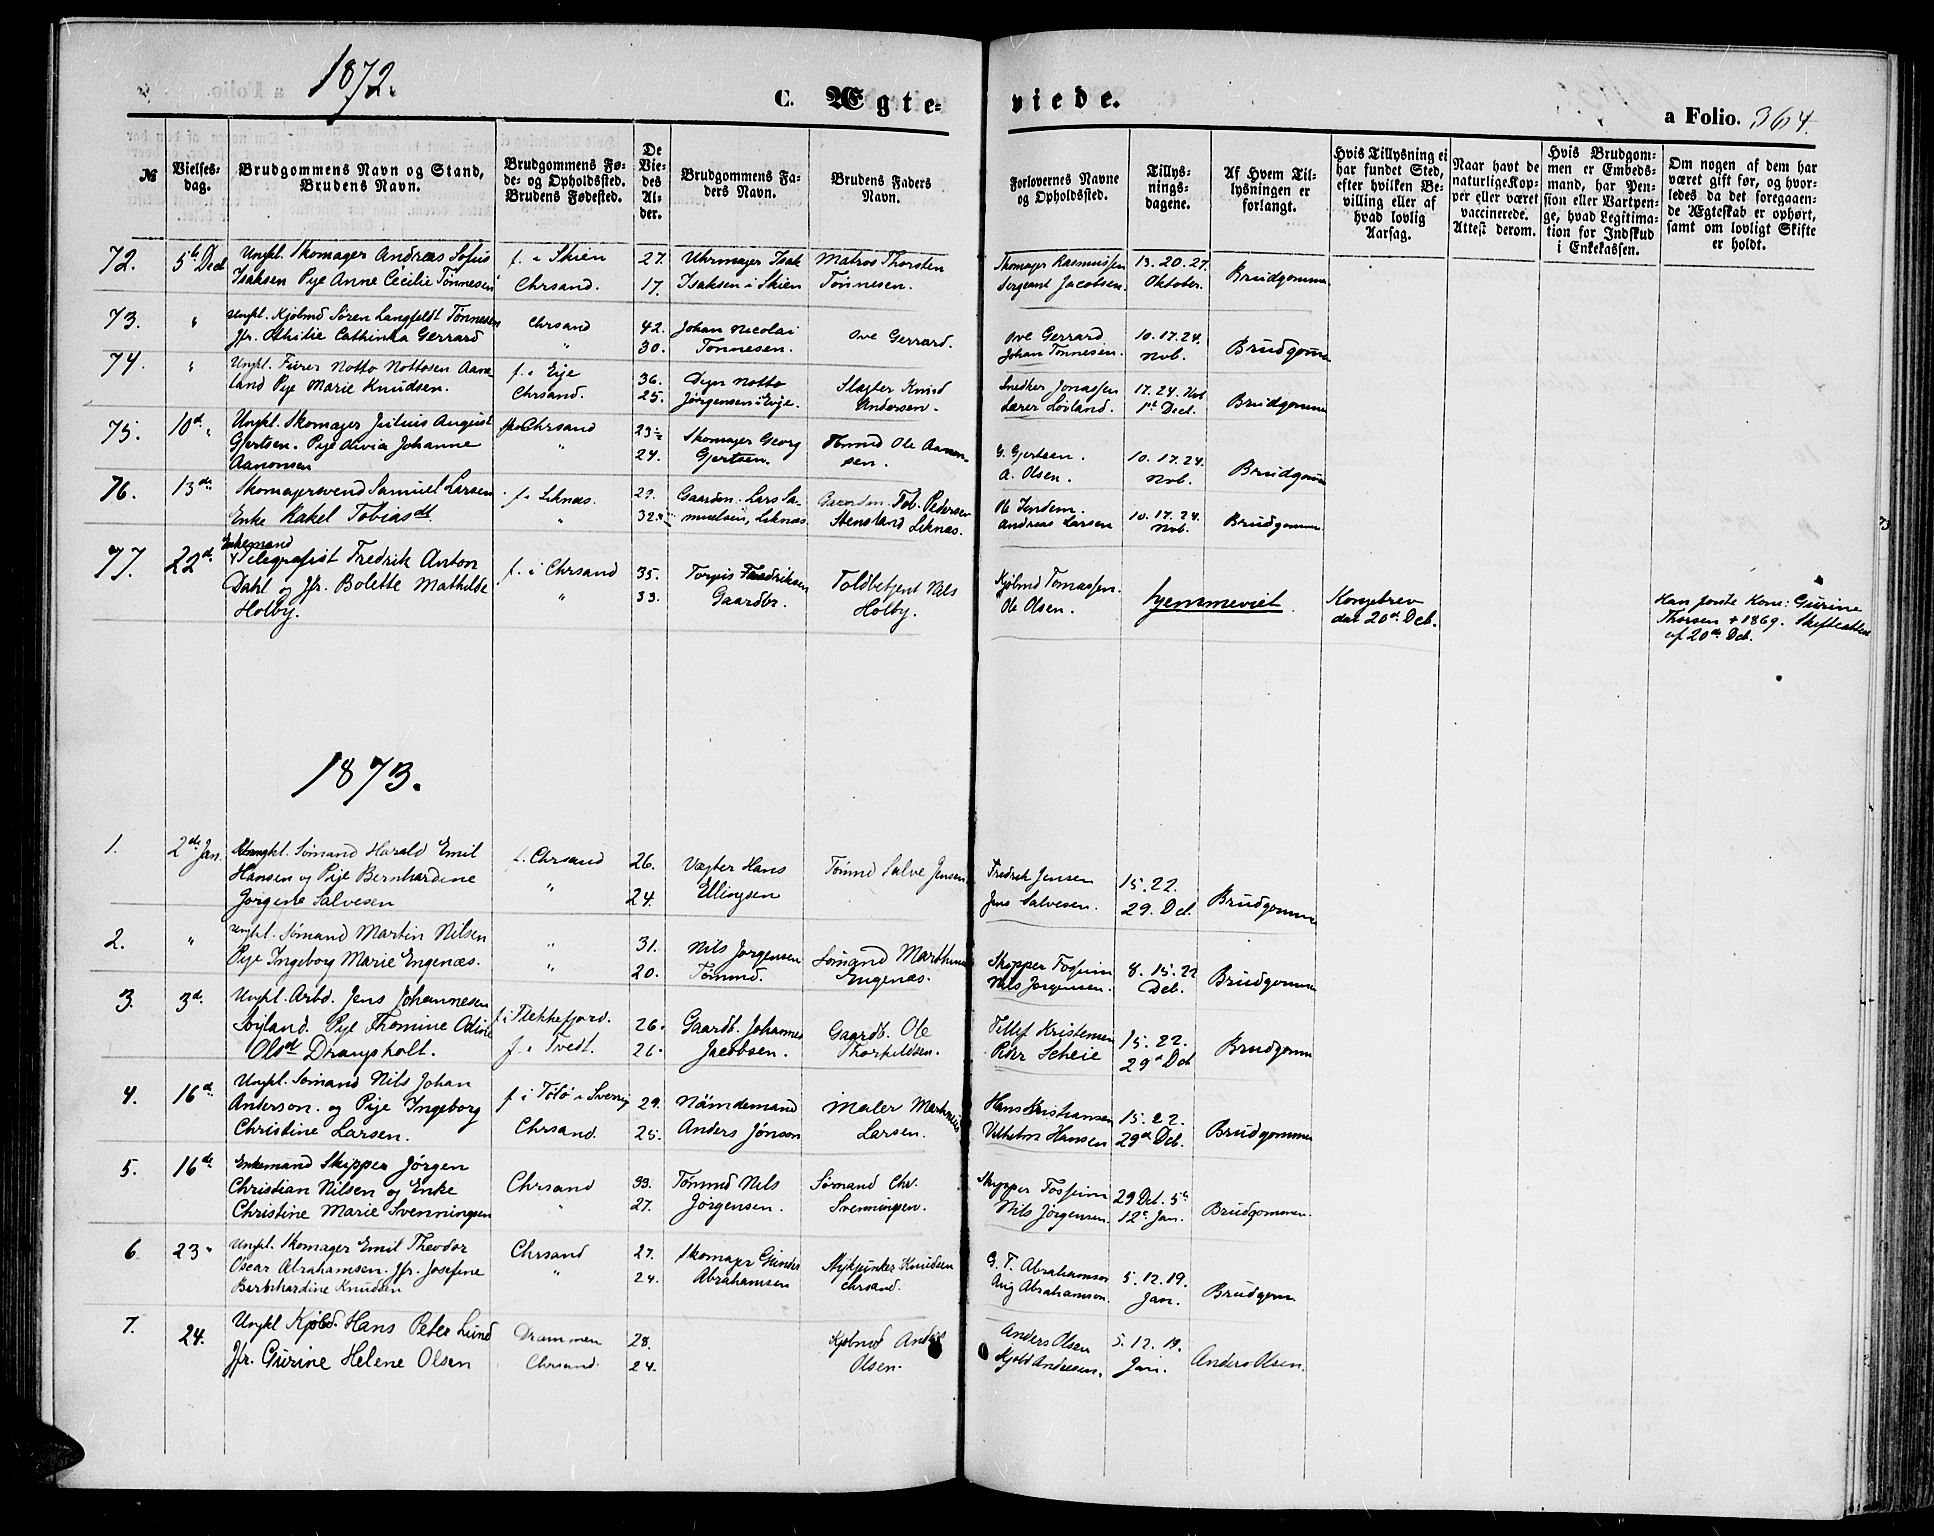 1872.
C. Ægte-
viede.
a Folio. 364.
№
Vielses-
dag.
Brudgommens Navn og Stand,
Brudens Navn.
Brudgommens Fø-
de- og Opholdssted.
Brudens Fødested.
De
Vie-
des
Al-
der.
Brudgommens Fa-
ders Navn.
Brudens Faders
Navn.
Forlovernes Navne
og Opholdssted.
Tillys-
nings-
dagene.
Af Hvem Til-
lysningen er
forlangt.
Hvis Tillysning ei
har fundet Sted,
efter hvilken Be-
villing eller af
hvad lovlig
Aarsag.
Naar havt de
naturlige Kop-
per eller været
vaccinerede.
Attest derom.
Hvis Brudgom-
men er Embeds-
mand, har Pen-
sion eller Vartpen-
ge, hvad Legitima-
tion for Indskud
i Enkekassen.
Om nogen af dem har
været gift før, og hvor-
ledes da det foregaaen-
de Ægteskab er ophørt,
samt om lovligt Skifte
er holdt.
72. 5t Dec
Ungkl. Skomager Andreas Sofus
Isaksen Pige Anne Cecilie Tønnesen
f. i Skien
Chrsand.
27.
17.
Uhrmager Isak
Isaksen i Skien
Matros Thorsten
Tønnesen.
Skomager Rasmussen
Sergeant Jacobsen.
13. 20. 27.
Oktober.
Brudgommen
73. "
Ungkl. Kjølmd Søren Langfeldt Tønnesen
Jfr. Othilie Cathinka Gerrard
Chrsand
"
42.
30.
Johan Nicolai
Tønnesen.
Ove Gerrard.
Ove Gerrard
Johan Tønnesen.
10. 17. 24.
Nob.
Brudgomm
74. "
Ungkl. Furer Notto Nottosen Aane-
land Pige Marie Knudsen.
f. i Eije
Chrsand.
36.
25.
Dyn Notto
Jørgensen i Evje.
Slagter Knud
Andersen.
Snedker Jonassen
Lærer Løiland.
17. 24. Nob
1st Decb.
Brudgomme
75. 10d "
Ungkl. Skomager Julius August
Gjertsen. Pige Olivia Johanne
Aanonsen
Chrsand
"
23½
24.
Skomager Georg
Gjertsen.
Tømmd Ole Aanon-
sen.
G. Gjertsen.
A. Olsen.
10. 17. 24.
Nob.
Brudgom
76. 13de
Skomagersvend Samuel Larsen
Enke Rakel Tobiasdt
f. i Leknæs.
"
29.
32.
Gaardm. Lars Sa-
muelsen, Leknæs
Gaardm. Tob. Pedersen
Stensland Leknæs.
Andreas Larsen
10. 17. 24.
Nob.
Brudgomme
77. 22de
Enkemand
Telegrafist Fredrik Anton
Dahl og Jfr. Bolette Mathilde
Holby.
f. i Chrsand
"
35.
33.
Torgius Fredriksen
Gaardbr.
Toldbetjent Nils
Holby.
Kjølmd Tomassen.
Ole Olsen.
hjemmeviet.
Kongebrev
dat 20de Dcb.
Han første Kone: Gurine
Thorsen + 1869. Skifteattest
af 20de Dcb.
1873.
1. 2de Jan.
Ungkl. Sømand Harald Emil
Hansen og Pige Bernhardine
Jørgine Salvesen
f. Chrsand
"
26.
24.
Vægter Hans
Ellingsen
Tømmd Salve Jensen
Fredrik Jensen
Jens Salvesen.
15. 22.
29. Dcb.
Brudgomme
2. "
Ungkl. Sømand Martin Nilsen
Pige Ingeborg Marie Engenæs.
"
"
31.
20.
Nils Jørgensen
Tømmd.
Sømand Marthinus
Engenæs.
Skipper Fosheim
Nils Jørgensen.
8. 15. 22
Dcb.
Brudgomme
3. 3de
Ungkl. Arbd. Jens Johannesen
Søyland. Pige Thomine Odine
Olsdt Drangsholt.
f. i Flekkefjord.
f. i Tvedt.
26.
26.
Gaardb. Johannes
Jacobsen.
Gaardb. Ole
Thorkildsen.
Tellef Kristensen
Peder Scheie
15. 22.
29de Dcb
Brudgomm
4. 16de
Ungkl. Sømand Nils Johan
Anderson. og Pige Ingeborg
Christine Larsen.
f. i Tölö i Sverrig
Chrsand.
29.
25.
Nämdemand
Anders Jönson
Maler Martinius
Larsen.
Hans Kristiansen
Vilhelm Hansen
15. 22.
29de Dcb.
Brudgomme
5. 16de
Enkemand Skipper Jørgen
Christian Nilsen og Enke
Christine Marie Svenningsen
Chrsand
"
33.
27.
Tømmd Nils
Jørgensen.
Sømand Chr.
Svenningsen.
Skipper Fosheim
Nils Jørgensen.
29 Dcb. 5te
12te Jan.
Brudgommen.
6. 23 "
Ungkl. Skomager Emil Theodor
Oscar Abrahamsen. Jfr. Josefine
Bernhardine Knudsen
Chrsand
"
27.
24.
Skomager Gunder
Abrahamsen
Stykjunker Knudsen
Chrsand.
G. T. Abrahamsen
Aug Abrahamsen.
5. 12. 19.
Jan.
Brudgom.
7. 24.
Ungkl Kjøbd. Hans Peter Lund
Jfr. Gurine Helene Olsen
Drammen
Chrsand.
28.
24.
Kjøbmd Anders
Olsen.
Anders Olsen
Kjøbd Andresen.
5. 12. 19.
Jan.
Anders Olsen.
73